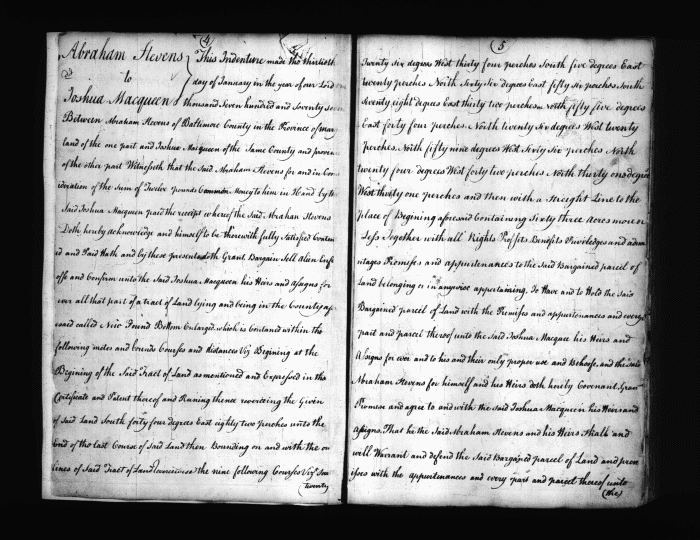 4
Abraham Stevens
to
Joshua Macqueen
This Indenture made the thirtieth
day of January in the year of our Lord
thousand Seven hundred and Seventy
Between Abraham Stevens of Baltimore County in the Province of Mary
land of the one part and Joshua Macqueen of the Same County and provin
of the other part Witnesseth that the Said Abraham Stevens for and in Con
sideration of the Sum of Twelve pounds Common Money to him in Hand by the
Said Joshua Macqueen paid the receipt whereof the Said Abraham Stevens
Doth hereby acknowledge and himself to be therewith fully Satisfied Conten
ed and Paid Hath and by these presents doth Grant Bargain Sell alien Enfe
offe and Confirm unto the Said Joshua Macqueen his Heirs and Assigns for
ever all that part of a tract of Land lying and being in the County af
esaid called New Found Bottom Enlarged which is Contained within the
following metes and bounds Courses and distances Viz Begining at the
Begining of the Said Tract of Land as mentioned and Expressed in the
Certificate and Patent thereof and Runing thence reverseing the Given
of Said Land South forty four degrees East eighty two perches unto the
End of the last Course of Said Land then Bounding on and with the ou
lines of Said Tract of Land the nine following Courses Viz Sou
(twenty
5
Twenty Six degrees West thirty four perches South five degrees East
twenty perches North Sixty Six degrees East fifty Six perches South
Seventy eight degrees East thirty two perches North fifty five degrees
East forty four perches North twenty Six degrees West twenty
perches North fifty nine degrees West Sixty Six perches North
twenty four degrees West forty two perches North thirty one degrees
West thirty one perches and then with a Straight Line to the
place of Begining aforesaid Containing Sixty three Acres more or
Less Together with all Rights Proffits Benefits Priviledges and advan
ntages Premises and appurtenances to the Said Bargained parcel of
Land belonging or in anywise appertaining, To Have and to Hold the Said
Bargained parcel of Land with the Premises and appurtenances and every
part and parcel thereof unto the Said Joshua Macquee his Heirs and
Assigns for ever and to his and their only proper use and Behoofe, and the Said
Abraham Stevens for himself and his Heirs doth hereby Covenant, Gran
Promise and agree to and with the Said Joshua Macqueen his Heirs and
Assigns. That he the Said Abraham Stevens and his Heirs Shall and
will Warrant and defend the Said Bargained parcel of Land and prem
ises with the appurtenances and every part and parcel thereof unto
(the)